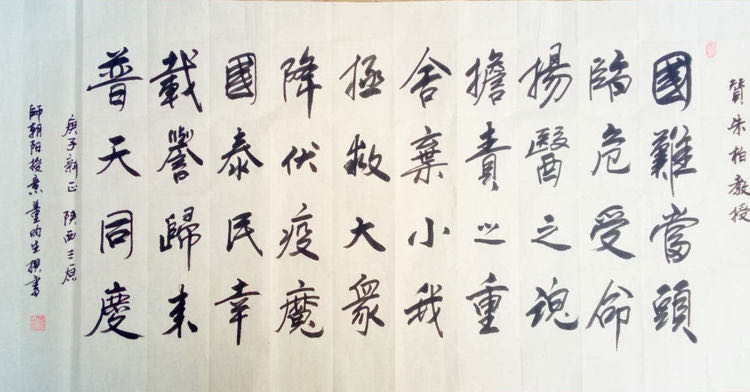 贊朱柏教授
國難當頭
臨危受命
揚醫之魂
擔責之重
舍棄小我
拯救大衆
降伏疫魔
國泰民幸
載譽歸來
普天同慶
庚子新正 陕西三原
師朝阳授意董生撰書